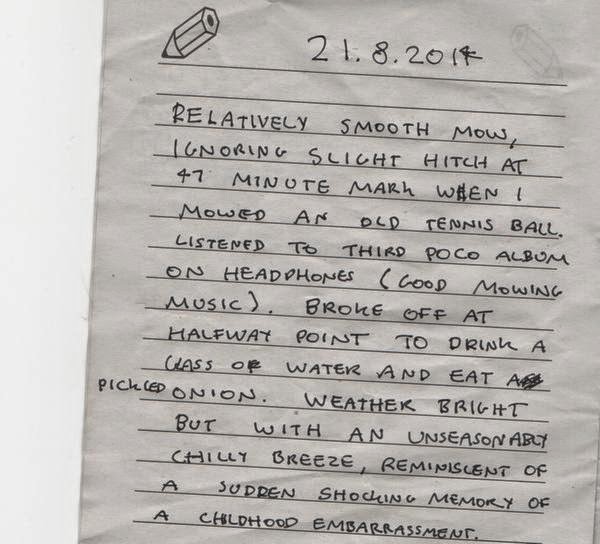 21.8.2014
RELATIVELY SMOOTH MOW,
IGNORING SLIGHT HITCH AT
47 MINUTE MARK WHEN I
MOWED AN OLD TENNIS BALL.
LISTENED TO THIRD POCO ALBUM
ON HEADPHONES (GOOD MOWING
MUSIC). BROKE OFF AT
HALFWAY POINT TO DRINK A
GLASS OF WATER AND EAT A
PICKLED ONION. WEATHER BRIGHT
BUT WITH AN UNSEASONABLY
CHILLY BREEZE, REMINISCENT OF
A SUDDEN SHOCKING MEMORY OF
A CHILDHOOD EMBARRASSMENT.